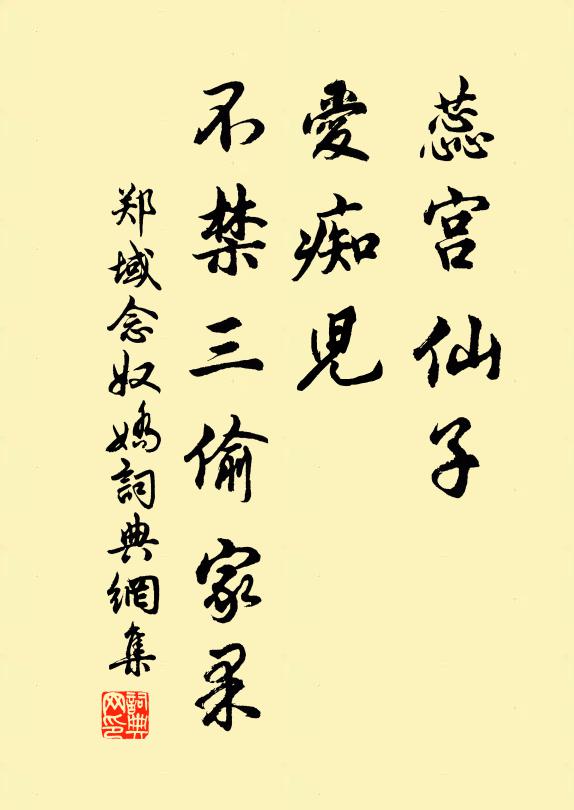 蕊宫仙子
愛痴児
不禁三偷家果
郑域念奴嬌詞典網集
詞典网印